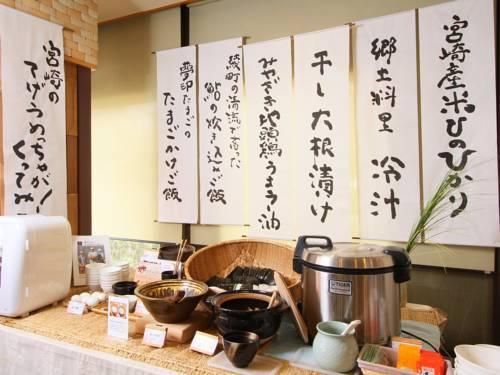 宮崎産米ひのひかり
郷土料理 冷汁
干し大根漬け
みやざき地頭鶏うまラー油
綾町の清流で育った
鮎の炊き込みご飯
夢印たまごの
たまごかけご飯
宮崎の
てげうめっちゃが!
くってみ
TIGER